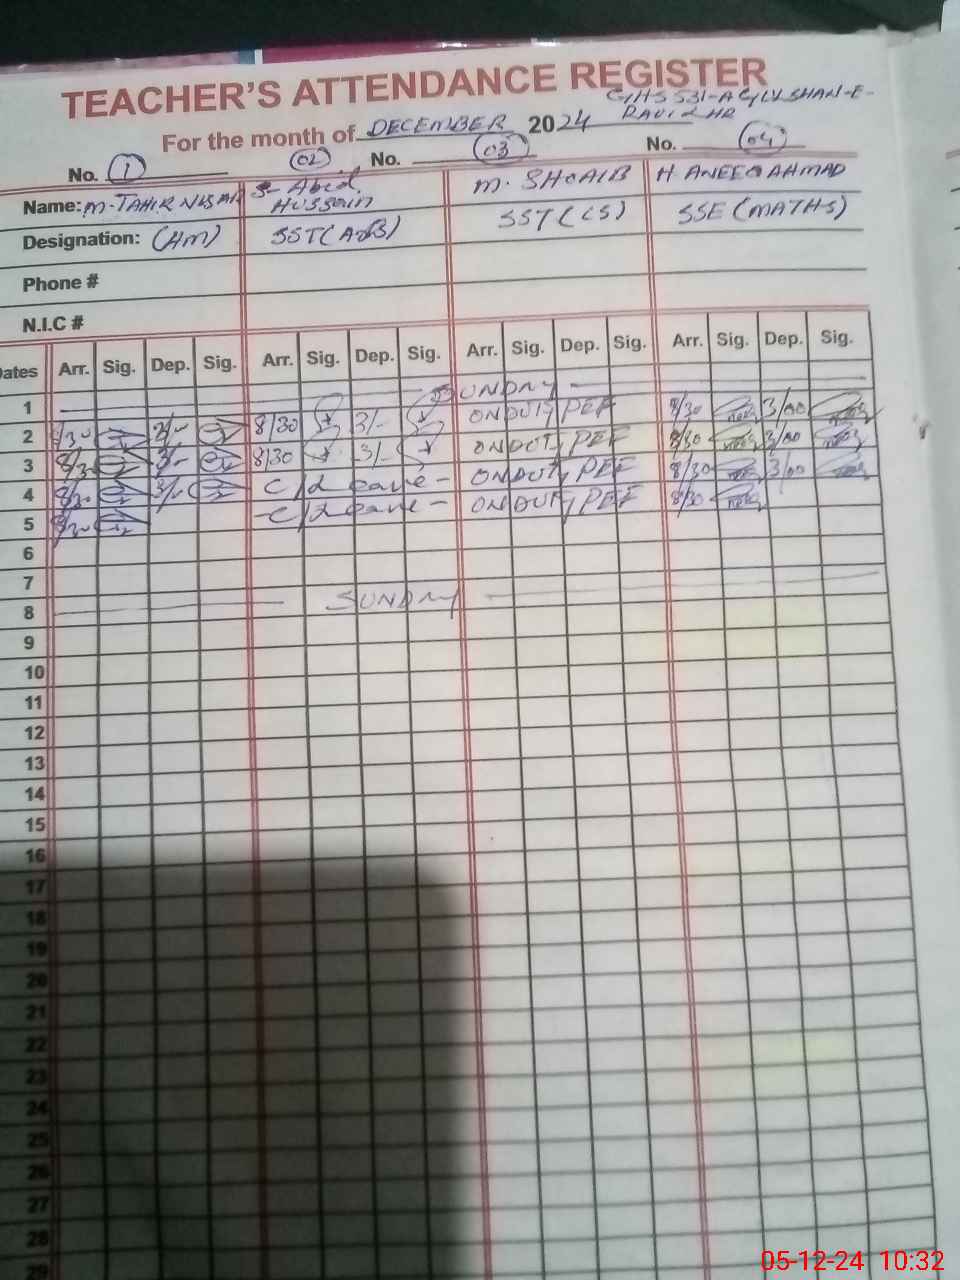 TEACHER'S ATTENDANCE REGISTER
GHS 531-A GULSHAN-E-
RAVI LHR
For the month of DECEMBER 2024
No. 1 02 No. 03 No. 04
Name: M-TAHIR NISAR S-Abid HUSSAIN M. SHOAIB H ANEEQ AHMAD
Designation: (HM) SST( SST(CS) SSE(MATHS)
Phone #
N.I.C #
Dates Arr. Sig. Dep. Sig. Arr. Sig. Dep. Sig. Arr. Sig. Dep. Sig. Arr. Sig. Dep. Sig.
1 SUNDAY
2 8/30 3/- 8/30 3/- ONDUTY PEF 8/30 3/00
3 8/30 3/- 8/30 3/- ONDUTY PEF 8/30 3/00
4 8/30 3/- C/Leave - ONDUTY PEF 8/30 3/00
5 8/30 - C/Leave - ONDUTY PEF 8/30
6
7
8 SUNDAY
9
10
11
12
13
14
15
16
17
18
19
20
21
22
23
24
25
26
27
28
29
05-12-24 10:32